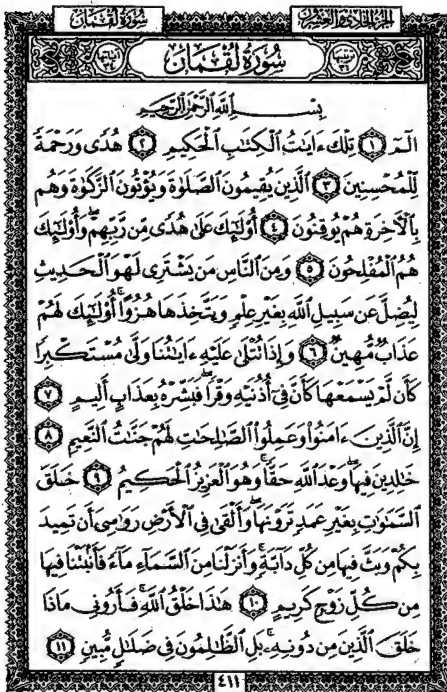 سُورَةُ لُقْمَانَ الجزء الحادي والعشرون
سُورَةُ لُقْمَانَ
بِسْمِ اللَّهِ الرَّحْمَٰنِ الرَّحِيمِ
الٓمٓ ١ تِلْكَ ءَايَٰتُ ٱلْكِتَٰبِ ٱلْحَكِيمِ ٢ هُدًى وَرَحْمَةً
لِّلْمُحْسِنِينَ ٣ ٱلَّذِينَ يُقِيمُونَ ٱلصَّلَوٰةَ وَيُؤْتُونَ ٱلزَّكَوٰةَ وَهُم
بِٱلْءَاخِرَةِ هُمْ يُوقِنُونَ ٤ أُو۟لَٰٓئِكَ عَلَىٰ هُدًى مِّن رَّبِّهِمْ ۖ وَأُو۟لَٰٓئِكَ
هُمُ ٱلْمُفْلِحُونَ ٥ وَمِنَ ٱلنَّاسِ مَن يَشْتَرِى لَهْوَ ٱلْحَدِيثِ
لِيُضِلَّ عَن سَبِيلِ ٱللَّهِ بِغَيْرِ عِلْمٍ وَيَتَّخِذَهَا هُزُوًا ۚ أُو۟لَٰٓئِكَ لَهُمْ
عَذَابٌ مُّهِينٌ ٦ وَإِذَا تُتْلَىٰ عَلَيْهِ ءَايَٰتُنَا وَلَّىٰ مُسْتَكْبِرًا
كَأَن لَّمْ يَسْمَعْهَا كَأَنَّ فِىٓ أُذُنَيْهِ وَقْرًا ۖ فَبَشِّرْهُ بِعَذَابٍ أَلِيمٍ ٧
إِنَّ ٱلَّذِينَ ءَامَنُوا۟ وَعَمِلُوا۟ ٱلصَّٰلِحَٰتِ لَهُمْ جَنَّٰتُ ٱلنَّعِيمِ ٨
خَٰلِدِينَ فِيهَا ۖ وَعْدَ ٱللَّهِ حَقًّا ۚ وَهُوَ ٱلْعَزِيزُ ٱلْحَكِيمُ ٩ خَلَقَ
ٱلسَّمَٰوَٰتِ بِغَيْرِ عَمَدٍ تَرَوْنَهَا ۖ وَأَلْقَىٰ فِى ٱلْأَرْضِ رَوَٰسِىَ أَن تَمِيدَ
بِكُمْ وَبَثَّ فِيهَا مِن كُلِّ دَآبَّةٍ ۚ وَأَنزَلْنَا مِنَ ٱلسَّمَآءِ مَآءً فَأَنۢبَتْنَا فِيهَا
مِن كُلِّ زَوْجٍ كَرِيمٍ ١٠ هَٰذَا خَلْقُ ٱللَّهِ فَأَرُونِى مَاذَا
خَلَقَ ٱلَّذِينَ مِن دُونِهِۦ ۚ بَلِ ٱلظَّٰلِمُونَ فِى ضَلَٰلٍ مُّبِينٍ ١١
٤١١